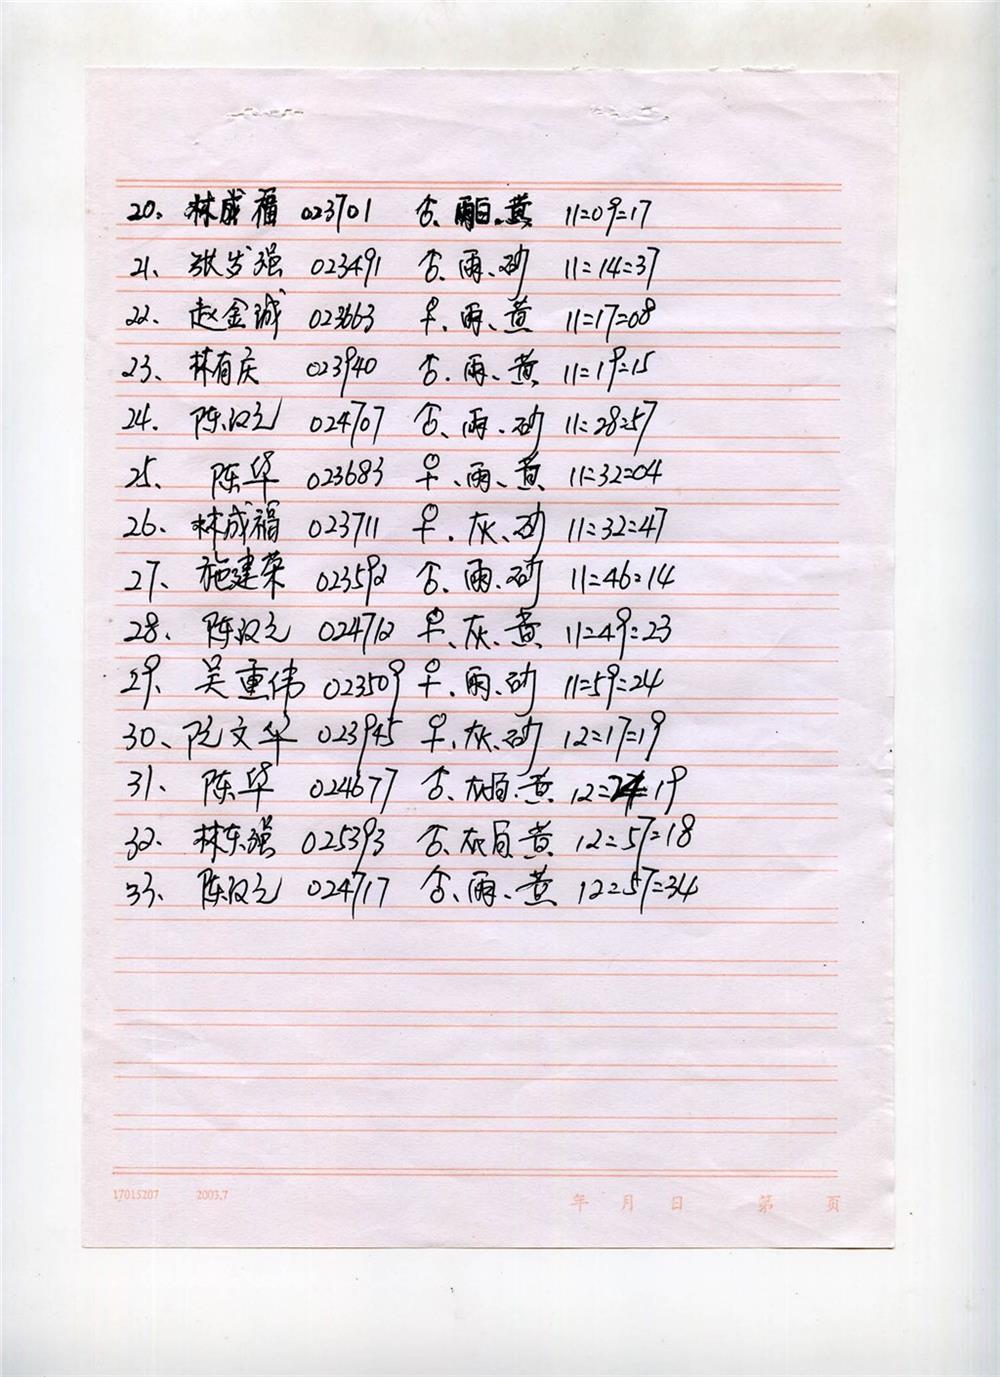 20、林成福 023701 ♂、雨白、黄 11=09=17
21、张岁强 023491 ♂、雨、砂 11=14=37
22、赵金诚 023663 ♀、雨、黄 11=17=08
23、林有庆 023940 ♂、雨、黄 11=19=15
24、陈汉之 024707 ♂、雨、砂 11=28=57
25、陈华 023683 ♀、雨、黄 11=32=04
26、林成福 023711 ♀、灰、砂 11=32=47
27、施建荣 023592 ♂、雨、砂 11=46=14
28、陈汉之 024712 ♀、灰、黄 11=49=23
29、吴重伟 023509 ♀、雨、砂 11=59=24
30、阮文华 023945 ♀、灰、砂 12=17=19
31、陈华 024677 ♂、灰白、黄 12=24=19
32、林东强 025393 ♂、灰白、黄 12=57=18
33、陈汉之 024717 ♂、雨、黄 12=57=34
17015207 2003.7 年 月 日 第 页